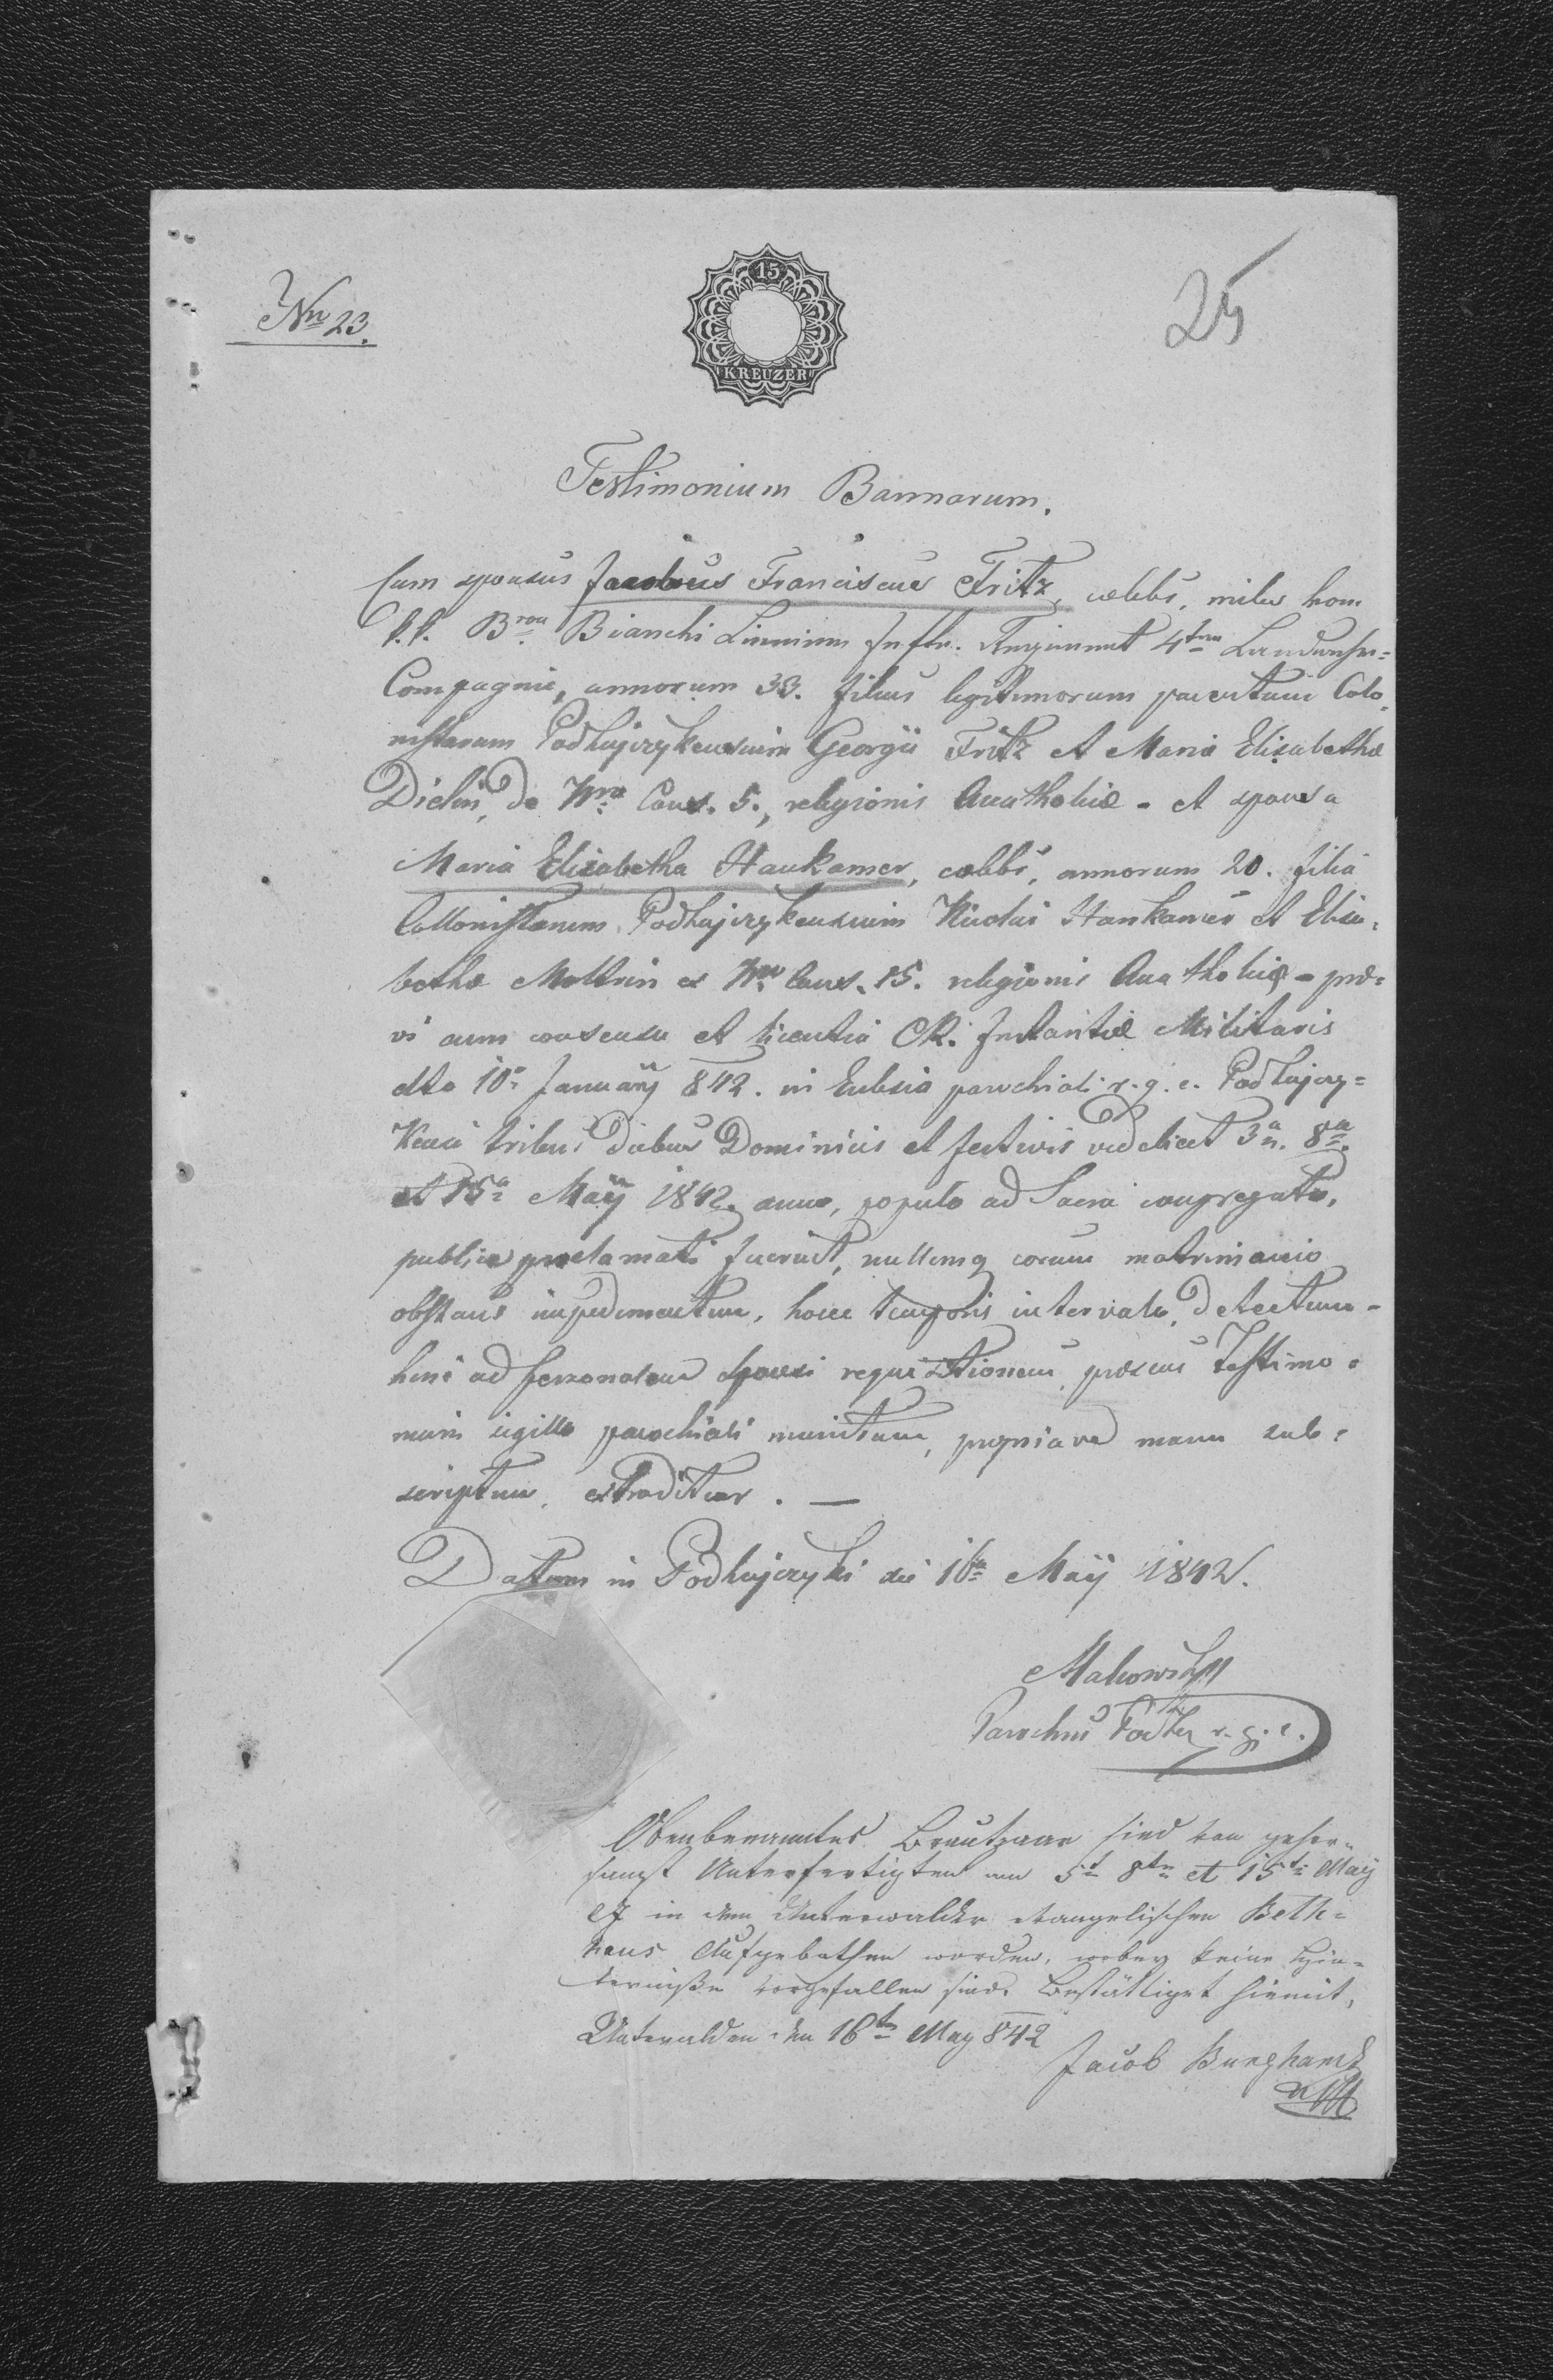 Nro 23.
25
15
KREUZER
Testimonium Bannarum.
Cum sponsus Jacobus Franciscus Fritz, cœlebs, miles vom
k.k. Bron Bianchi Linnien Inftr. Regiment 4ten Landwehr=
Compagnie, annorum 33. filius legitimorum parentum Colo,
nistarum Podhajczykensium Georgii Fritz et Maria Elisabethæ
de Nro Cons. 5., religionis Acatholicæ - et sponsa
Maria Elisabetha Haukamer, cœlebs, annorum 20. filia
Collonistarum Podhajczykensium Nicolai Haukamer et Elisa,
bethæ ex Nro Cons. 15. religionis Acatholicæ - præ=
vi cum consensu et licentia CR. Instantiæ Militaris
dto 10a Januarÿ 842. in Eclesia parochiali r. g. c. Podhajczy=
kensi tribus Diebus Dominicis et festivis videlicet 8a
et 15a Maÿ 1842. anno, populo ad Sacra congregato,
publice proclamati fuerint, nullumq eorum matrimonio
obstans impedimentum, hocce temporis intervalo, detectum -
hinc ad personalem Sponsi requisitionem, præsens Testimo=
nium sigillo parochiali munitum, propriave manu sub=
scriptum, extraditur. —
Datum in Podhajczyki die 16a Maÿ 1842.
Makowski
Parochus Podh r. g. c.
Obenbenanntes Brautpaar sind von gehor=
samst Unterfertigten am 5t 8ten et 15ten Maÿ
in dem Unterwalder evangelischen Beth=
haus Aufgebothen worden, wobey keine Hin=
derniße vorgefallen sind. Bestättiget hiemit,
Unterwalden den 16ten May 842
Jacob Burghardt